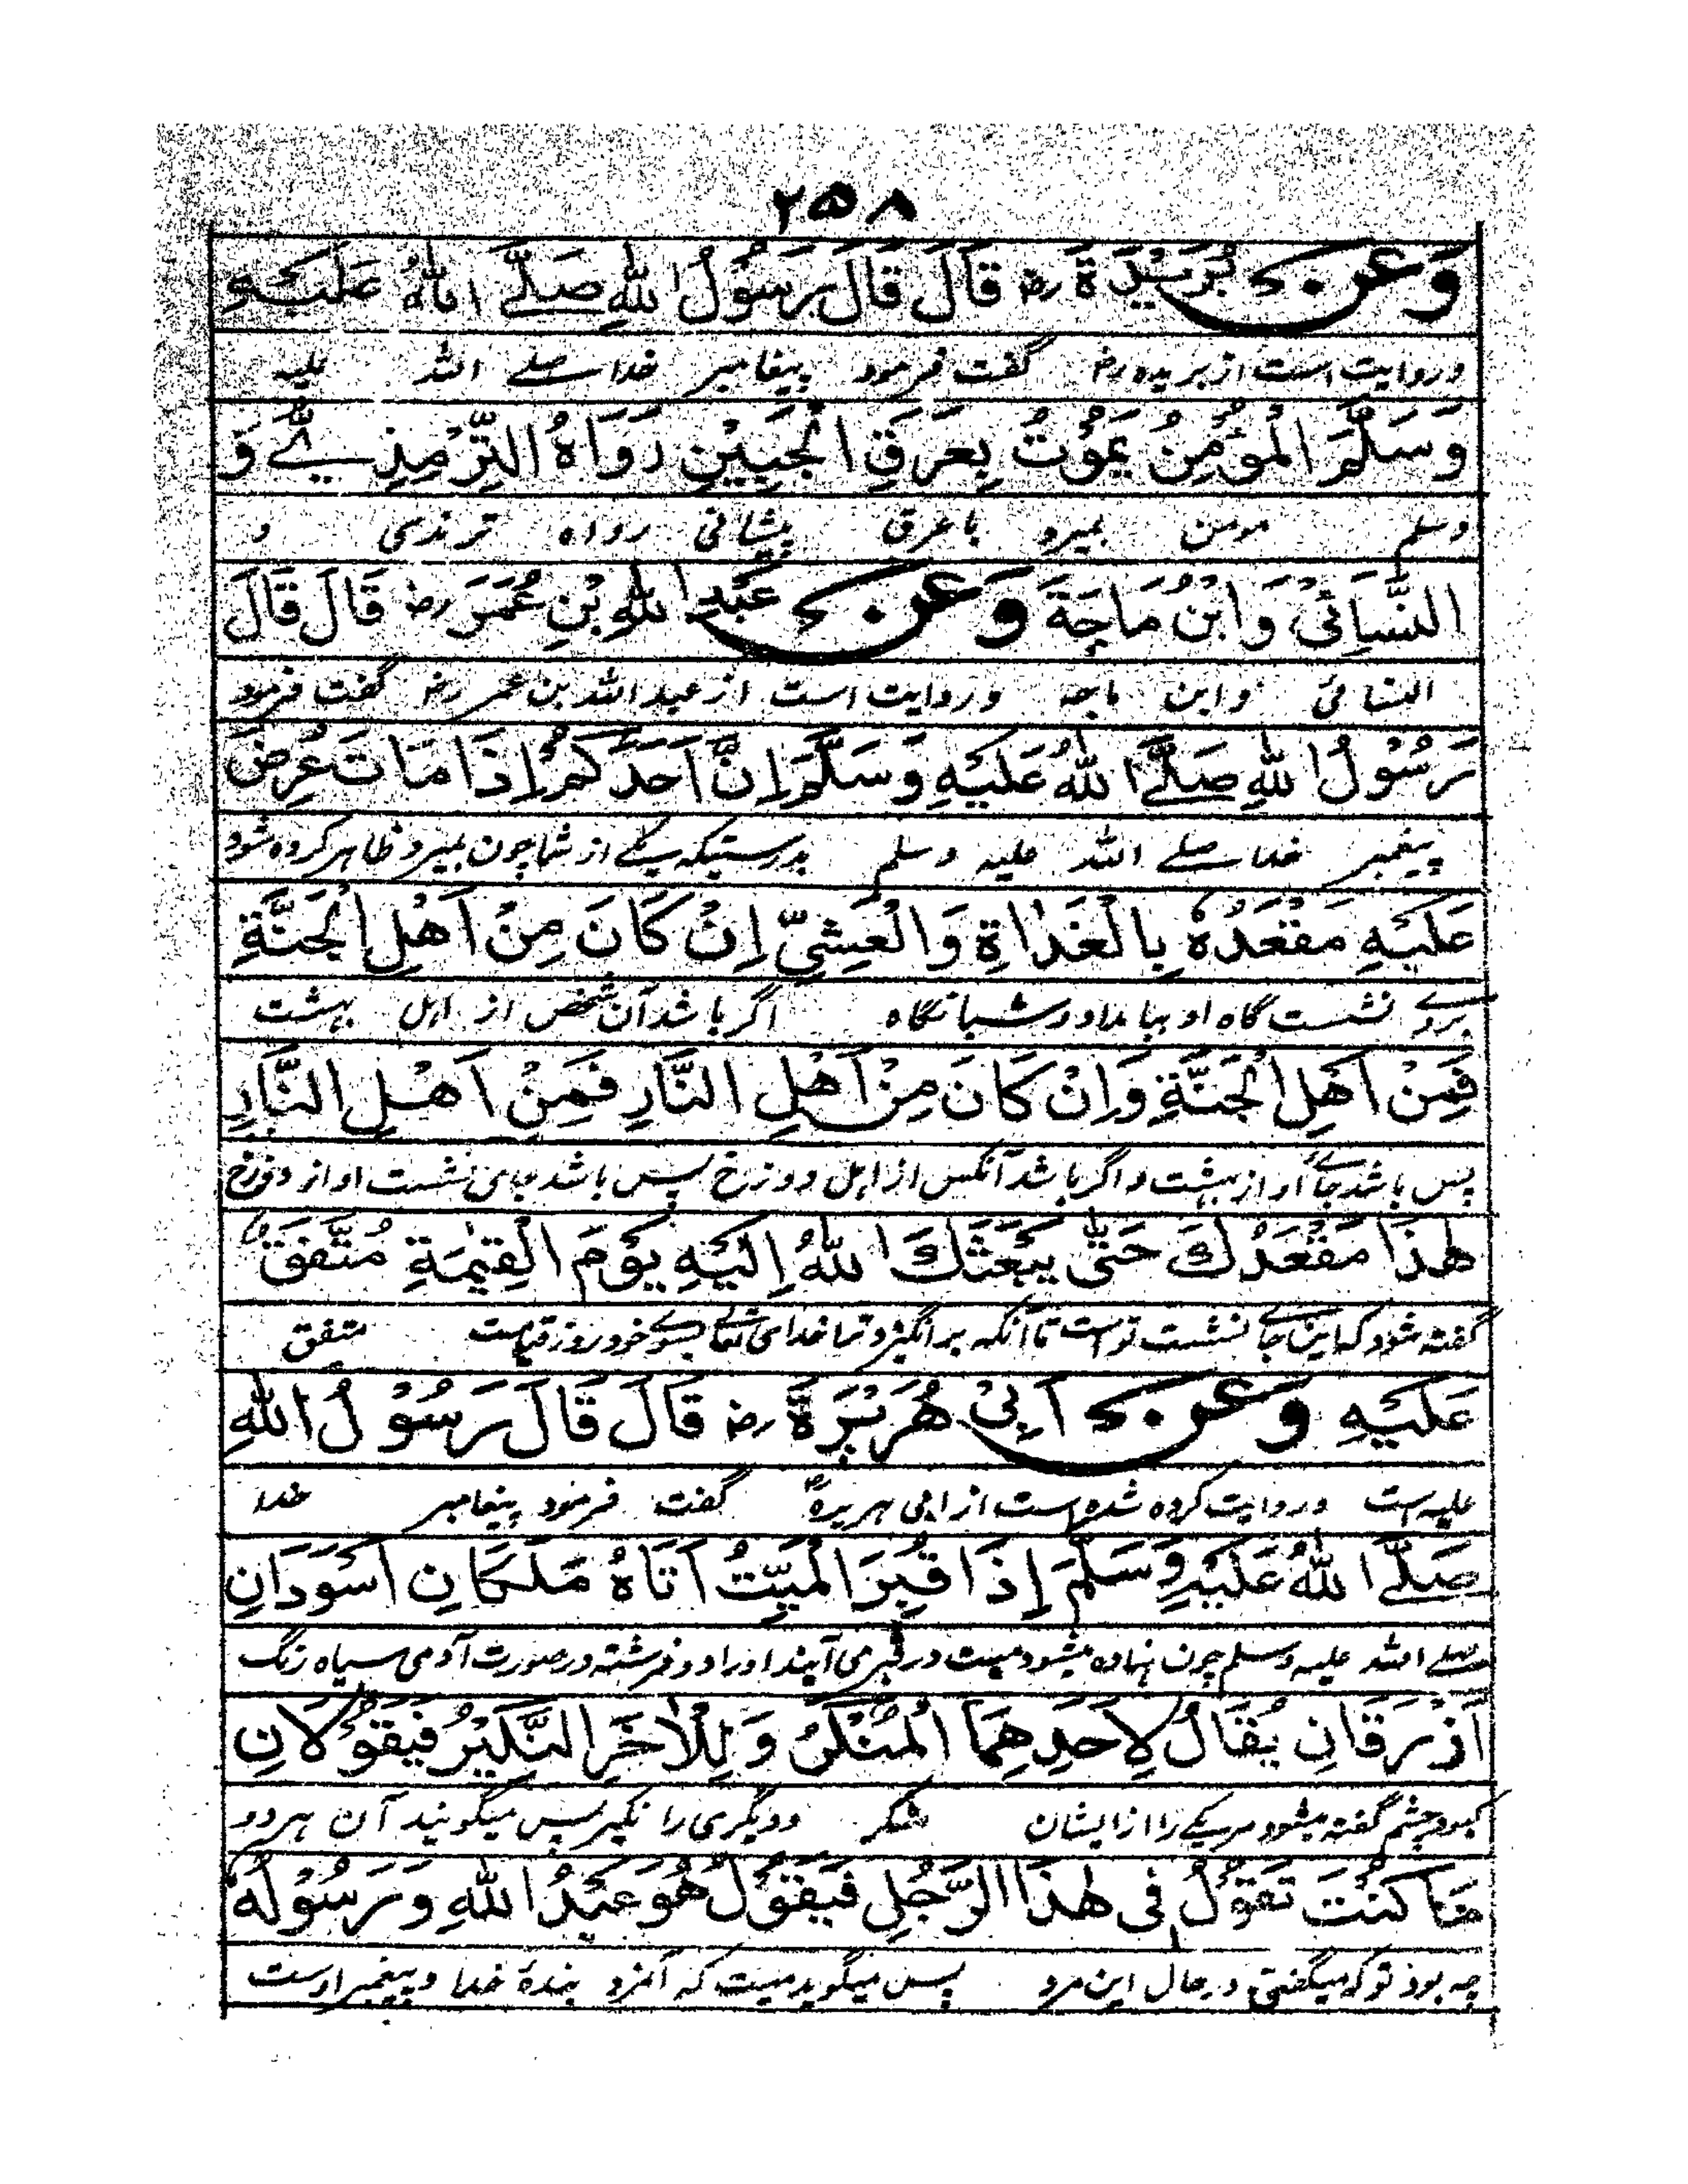 ۲۵۸
وَعَنْ بُرَيْدَةَ رض قَالَ قَالَ رَسُوْلُ اللهِ صَلَّے اللهُ عَلَيْهِ
وروایت است از بریده رض گفت فرمود پیغامبر خدا صلے اللہ علیہ
وَسَلَّمَ الْمُؤْمِنُ يَمُوْتُ بِعَرَقِ الْجَبِيْنِ رَوَاهُ التِّرْمِذِيُّ وَ
وسلم مومن بمیرد با عرق پیشانی رواه ترمذی و
النَّسَائِيُّ وَابْنُ مَاجَةَ وَعَنْ عَبْدِ اللهِ بْنِ عُمَرَ رض قَالَ قَالَ
النسائی وابن ماجه وروایت است از عبد اللہ بن عمر رض گفت فرمود
رَسُوْلُ اللهِ صَلَّے اللهُ عَلَيْهِ وَسَلَّمَ اِنَّ اَحَدَكُمْ اِذَا مَاتَ عُرِضَ
پیغمبر خدا صلے اللہ علیہ وسلم بدرستیکه یکے از شما چون بمیرد ظاہر کرده شود
عَلَيْهِ مَقْعَدُهُ بِالْغَدَاةِ وَالْعَشِيِّ اِنْ كَانَ مِنْ اَهْلِ الْجَنَّةِ
بروے نشست گاه او ببامداد و شبانگاه اگر باشد آن شخص از اہل بہشت
فَمِنْ اَهْلِ الْجَنَّةِ وَاِنْ كَانَ مِنْ اَهْلِ النَّارِ فَمِنْ اَهْلِ النَّارِ
پس باشد جائے او از بہشت و اگر باشد آنکس از اہل دوزخ پس باشد جای نشست او از دوزخ
هٰذَا مَقْعَدُكَ حَتّٰى يَبْعَثَكَ اللهُ اِلَيْهِ يَوْمَ الْقِيٰمَةِ مُتَّفَقٌ
گفته شود که این جاے نشست تو است تا آنکه بر انگیزد ترا خدای تعالے بسوے خود روز قیامت متفق
عَلَيْهِ وَعَنْ اَبِىْ هُرَيْرَةَ رض قَالَ قَالَ رَسُوْلُ اللهِ
علیہ است وروایت کرده شده است از ابی ہریرہ رض گفت فرمود پیغامبر خدا
صَلَّے اللهُ عَلَيْهِ وَسَلَّمَ اِذَا قُبِرَ الْمَيِّتُ اَتَاهُ مَلَكَانِ اَسْوَدَانِ
صلے اللہ علیہ وسلم چون نہاده میشود میت در قبر می آیند او را دو فرشته در صورت آدمی سیاه رنگ
اَزْرَقَانِ يُقَالُ لِاَحَدِهِمَا الْمُنْكَرُ وَلِلْاٰخَرِ النَّكِيْرُ فَيَقُوْلَانِ
کبود چشم گفته میشود مر یکے را از ایشان منکر و دیگری را نکیر پس میگویند آن ہر دو
مَا كُنْتَ تَقُوْلُ فِى هٰذَا الرَّجُلِ فَيَقُوْلُ هُوَ عَبْدُ اللهِ وَرَسُوْلُهُ
چه بود تو که میگفتی در حال این مرد پس میگوید میت که آنمرد بندهٔ خدا و پیغمبر اوست